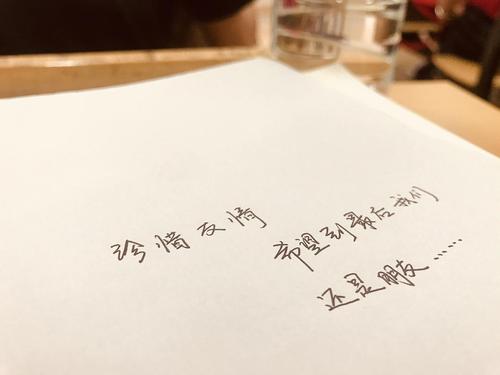 珍惜友情
希望到最后我们
还是朋友……